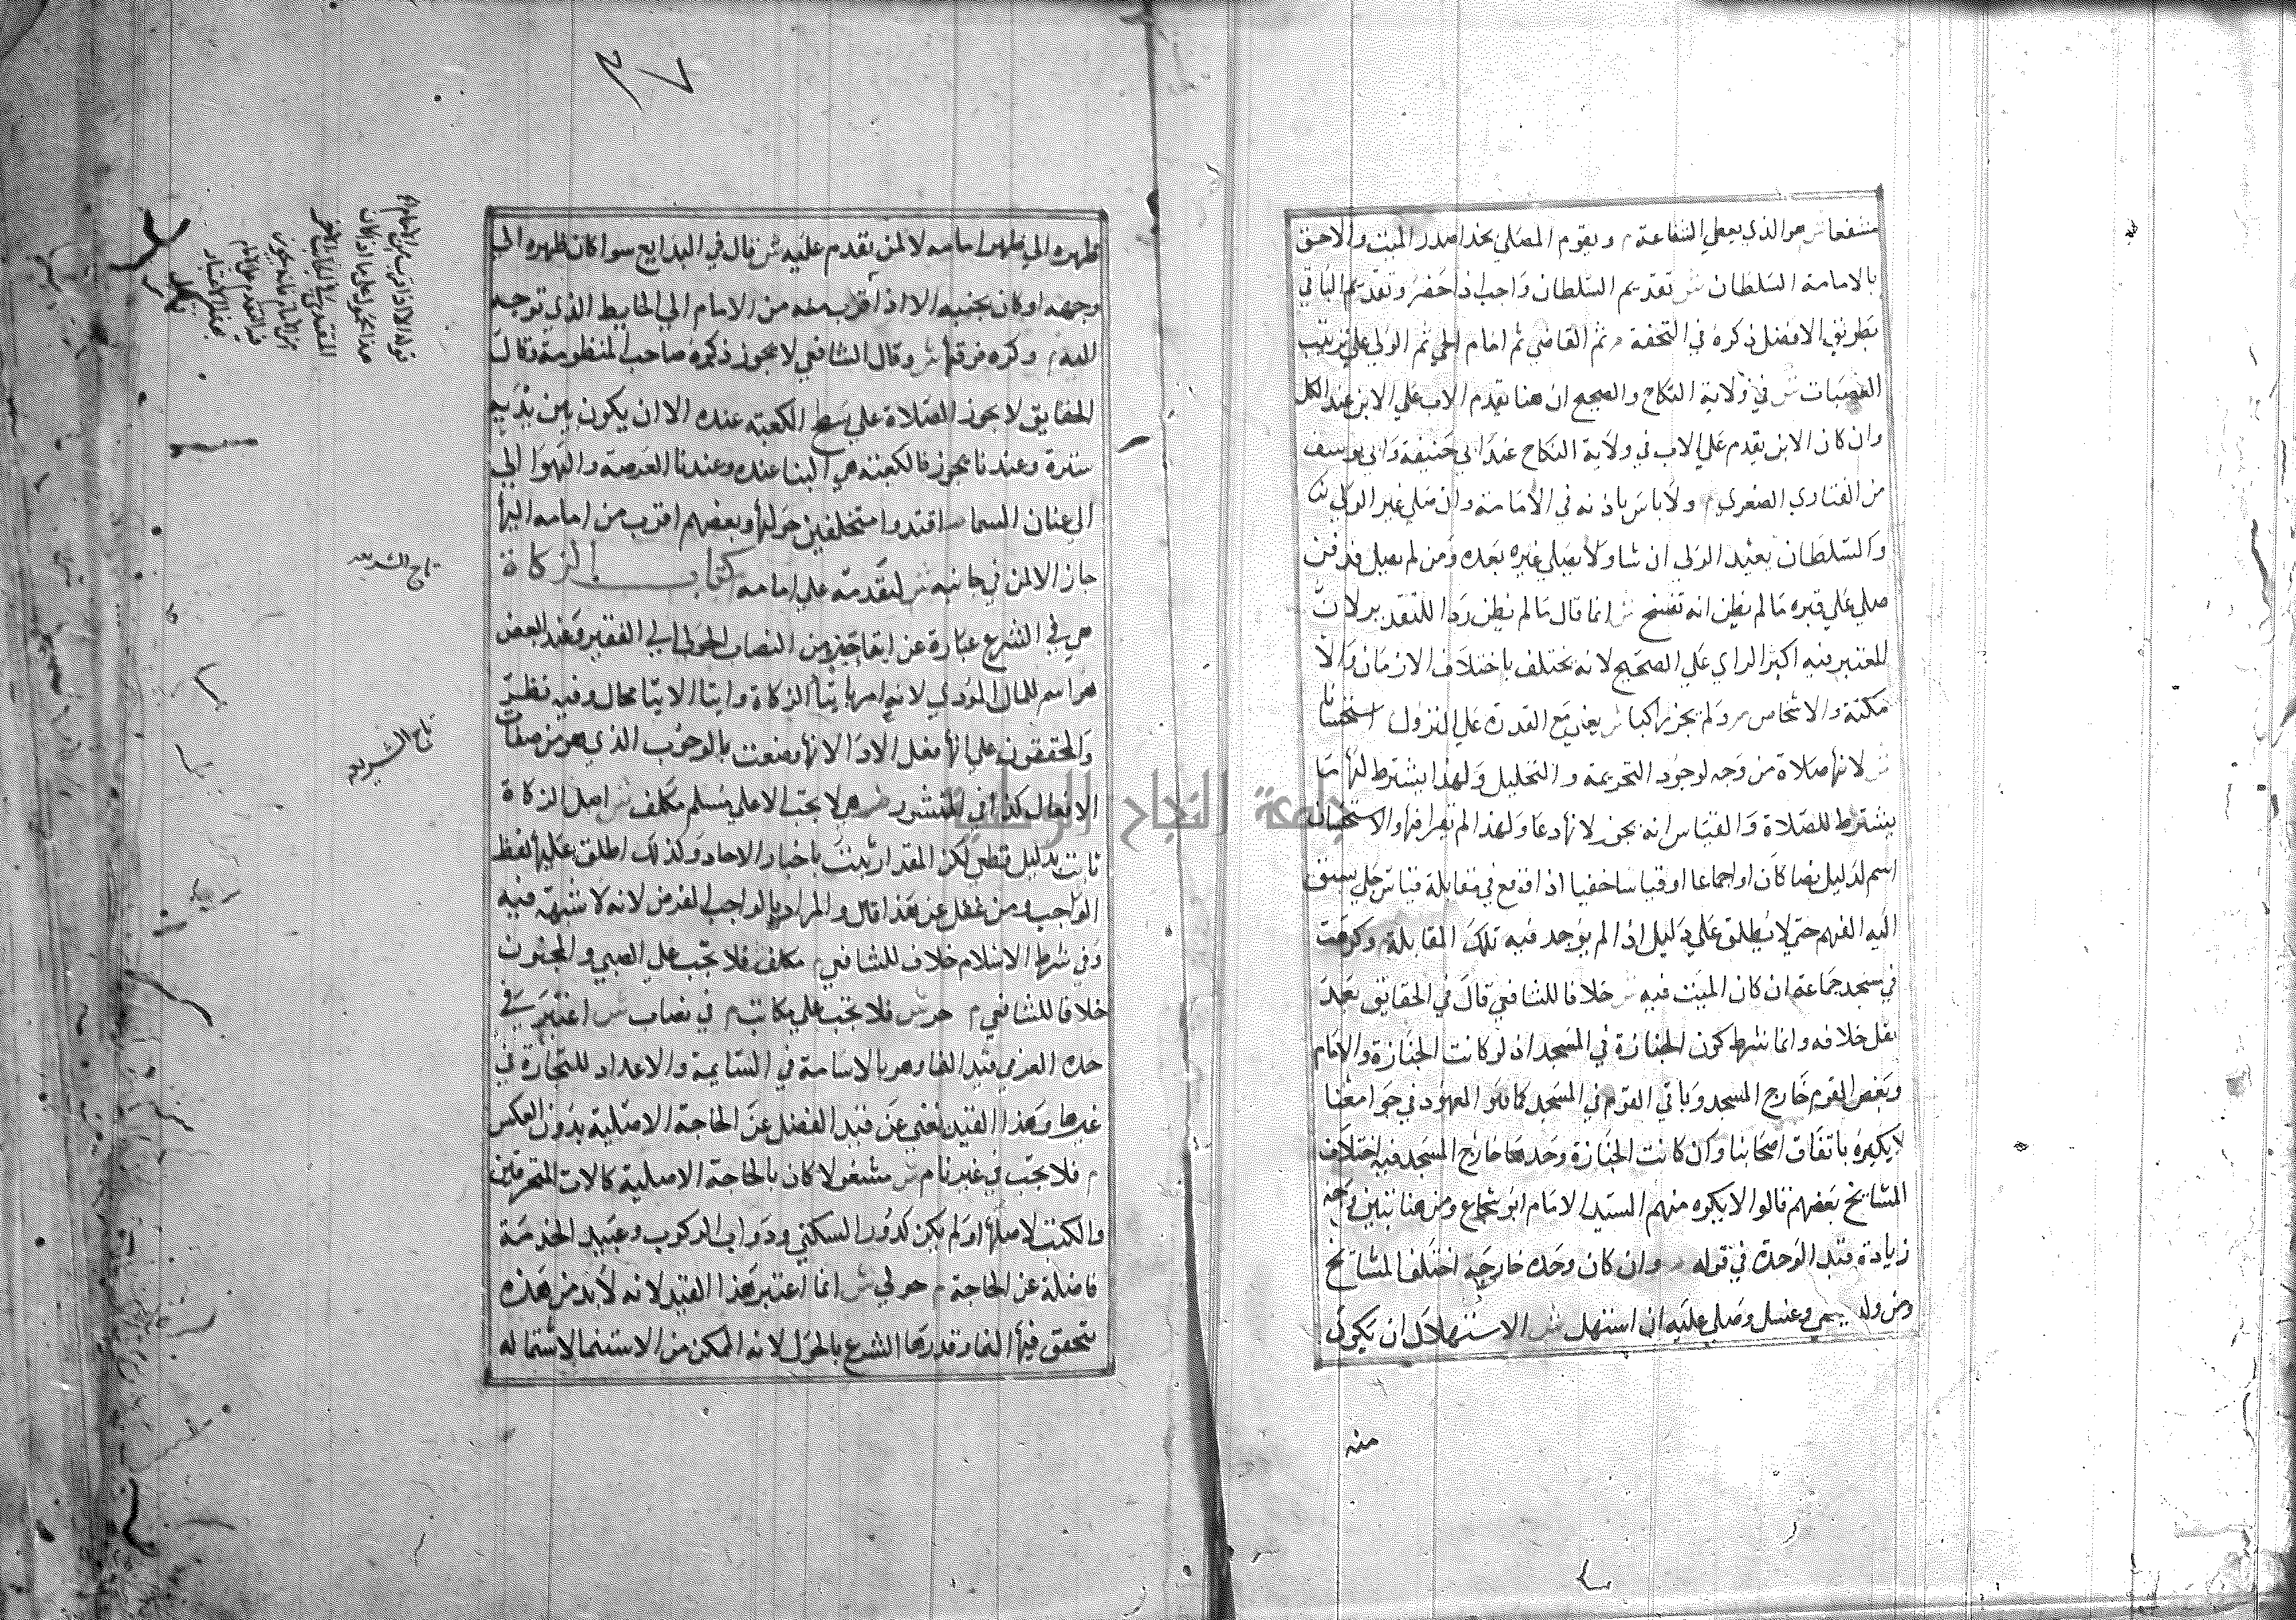 مشفعا ش هو الذي يعطي الشفاعة م ويقوم المصلي بحذا صدر الميت والاحق
بالامامة السلطان ش تقديم السلطان واجب اذا حضر وتقديم الباقي
بطريق الافضل ذكره في التحفة م ثم القاضي ثم امام الحي ثم الولي علي ترتيب
العصبات ش في ولاية النكاح والصحيح ان هنا يقدم الاب علي الابن عند الكل
وان كان الابن يقدم علي الاب في ولاية النكاح عند ابي حنيفة وابي يوسف
من الفتاوي الصغري م ولا باس باذنه في الامامة وان صلي غير الولي
والسلطان يعيد الولي ان شا ولا يصلي غيره بعده ومن لم يصل فدفن
صلي علي قبره مالم يظن انه تفسخ ش انما قال مالم يظن ردا للتقدير لان
المعتبر فيه اكبر الراي علي الصحيح لانه يختلف باختلاف الازمان والا
مكنة والاشخاص م ولم يجز راكبا ش يعني مع القدرة علي النزول استحسانا
ش لانها صلاة من وجه لوجود التحريمة والتحليل ولهذا يشترط لها ما
يشترط للصلاة والقياس انه يجوز لانها دعا ولهذا لم تقرا فيها والاستحسان
اسم لدليل نصا كان او اجماعا او قياسا خفيا اذا وقع في مقابلة قياس جلي يسبق
اليه الفهم حتي لا يطلق علي دليل اذا لم يوجد فيه تلك المقابلة م وكرهت
في مسجد جماعة ان كان الميت فيه ش خلافا للشافعي قال في الحقايق بعد
نقل خلافه وانما شرط كون الجنازة في المسجد اذ لو كانت الجنازة والامام
وبعض القوم خارج المسجد وباقي القوم في المسجد كما هو المعهود في جوامعنا
لا يكره باتفاق اصحابنا وان كانت الجنازة وحدها خارج المسجد فيه اختلاف
المشايخ بعضهم قالوا لا يكره منهم السيد الامام ابو شجاع ومن هنا تبين وجه
زيادة قيد الوحدة في قوله م وان كان وحده خارجه اختلف المشايخ
ومن ولد يسمي وغسل وصلي عليه ان استهل ش الاستهلال ان يكون
منه
٣٧
ظهره الي ظهر امامه لا لمن تقدم عليه ش قال في البدايع سوا كان ظهره الي
وجهه او كان بجنبه الا اذا اقرب منه من الامام الي الحايط الذي توجه
اليه م وكره فوقها ش وقال الشافعي لا يجوز ذكره صاحب المنظومة وقال
الحقايق لا يجوز الصلاة علي سطح الكعبته عنده الا ان يكون بين يديه
سترة وعندنا يجوز فالكعبته هي البنا عنده وعندنا العرصة والهوا الي
الي عنان السما م اقتدوا متحلقين حولها وبعضهم اقرب من امامه اليها
جاز الا لمن في جانبه ش لتقدمه علي امامه كتاب الزكاة
هي في الشرع عبارة عن ايتا جزء من النصاب الحولي الي الفقير وعند البعض
هو اسم للمال المؤدي لانه امر بايتا الزكاة وايتا الايتا محال وفيه نظر
والمحققون علي انها فعل الادا لانها وصفت بالوجوب الذي هو من صفات
الافعال كذا في المنشور م هي لا يجب الا علي مسلم مكلف ش اصل الزكاة
ثابت بدليل قطعي لكن المقدار ثبت باخبار الاحاد وكذلك اطلق عليها لفظ
الواجب ومن غفل عن هذا قال والمراد بالواجب الفرض لانه لا شبهة فيه
وفي شرط الاسلام خلاف للشافعي م مكلف فلا تجب علي الصبي والمجنون
خلافا للشافعي م حر ش فلا تجب علي مكاتب م في نصاب ش اعتبر في
حده العز في قيد النما وهو بالاسامة في السايمة والاعداد للتجارة في
غيرها وهذا القيد يغني عن قيد الفضل عن الحاجة الاصلية بدون العكس
م فلا تجب في غير نام ش مشغولا كان بالحاجة الاصلية كالات المحترفين
والكتب لاهلها او لم يكن كدور السكني ودواب الركوب وعبيد الخدمة
فاضلة عن الحاجة م حولي ش انما اعتبر هذا القيد لانه لا بد من مدة
يتحقق فيها النما وقدرها الشرع بالحول لانه الممكن من الاستنما لاشتماله
تاج الشريعه
تاج الشريعه
جامعة النجاح الوطنية